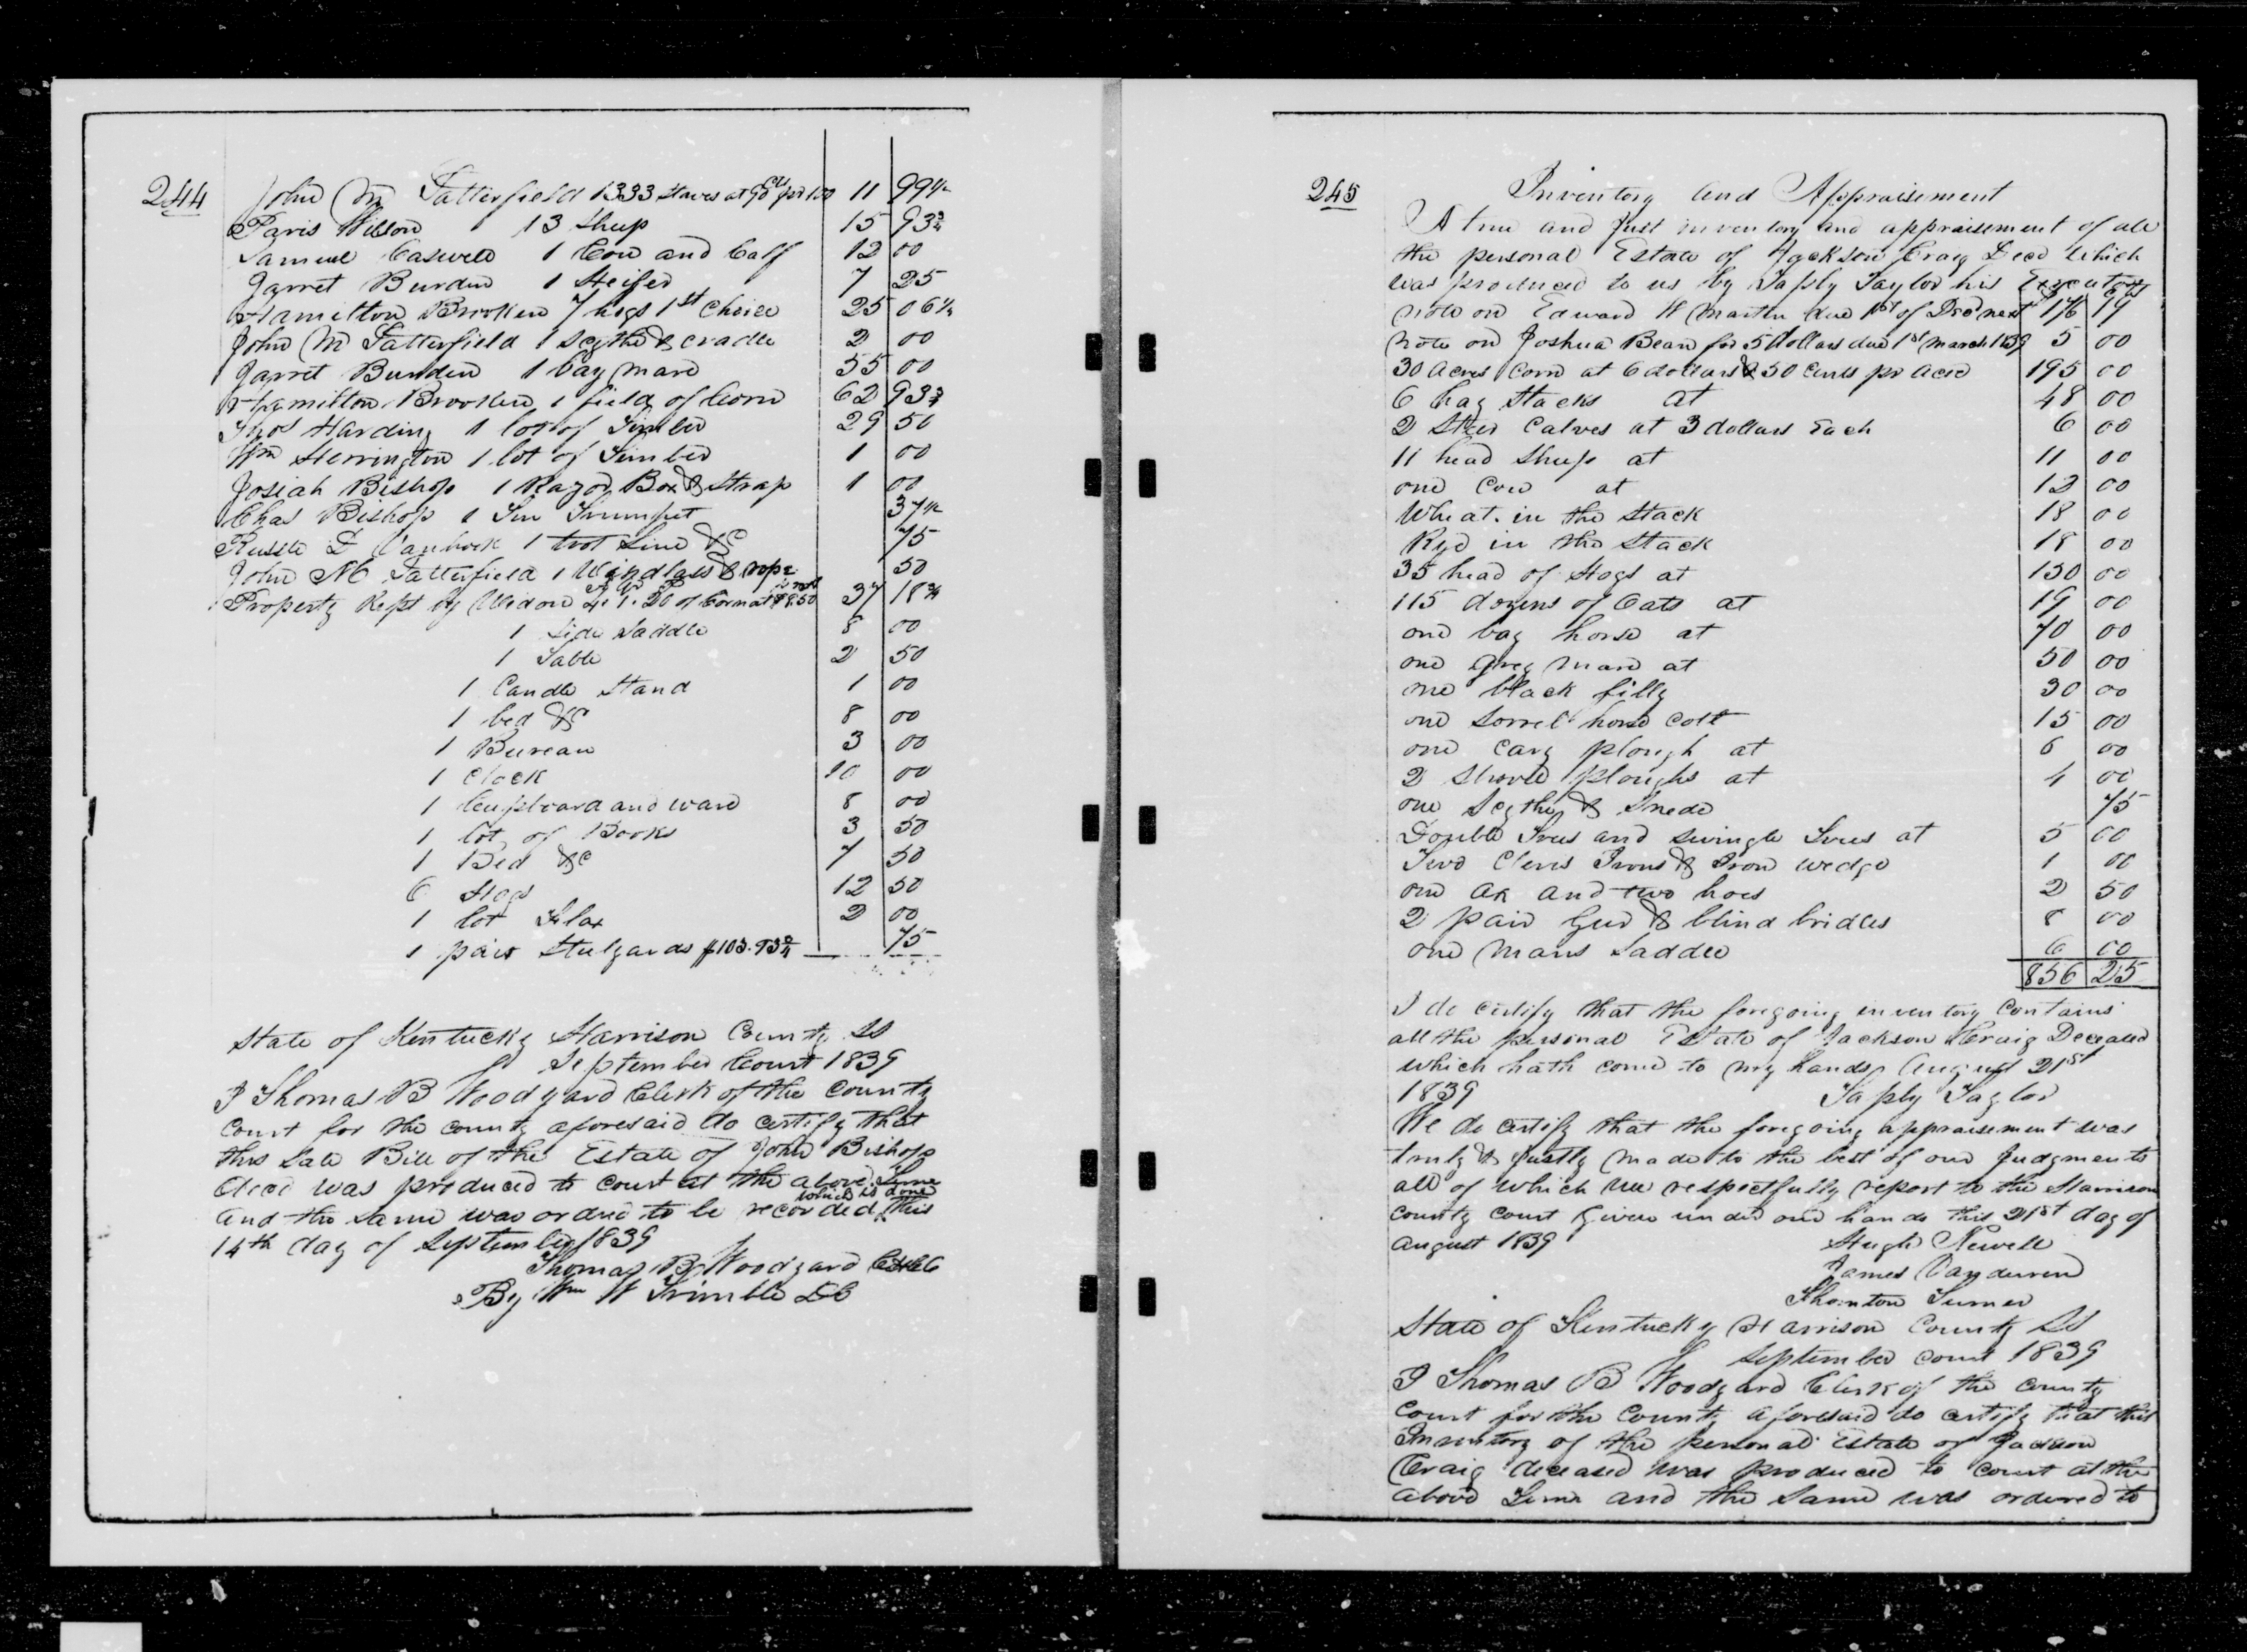 244 John M Satterfield 1333 staves at 90 cts pr 100 11 99 1/2
Paris Wilson 13 Sheep 15 93 3/4
Samuel Caswell 1 Cow and Calf 12 00
Garret Burden 1 Heifer 7 25
Hamilton Brooken 7 hogs 1st Choice 25 06 1/4
John M Satterfield 1 Scythe & cradle 2 00
Garret Burden 1 bay mare 55 00
Hamilton Brooken 1 field of Corn 62 93 3/4
Thos Harding 1 lot of Timber 29 50
Wm Herrington 1 lot of Timber 1 00
Josiah Bishop 1 Razor Box & Strap 1 00
Chas Bishop 1 Tin Trumpet 37 1/2
Russle D Vanhook 1 trot Line &C 75
John M Satterfield 1 Windlass & rope 50
Property Kept by Widow 4. 1. 20 of Corn at $8.50 37 18 3/4
1 Side Saddle 8 00
1 Table 2 50
1 Candle Stand 1 00
1 bed &C 8 00
1 Bureau 3 00
1 Clock 10 00
1 Cupboard and ware 8 00
1 lot of Books 3 50
1 Bed &C 7 50
6 Hogs 12 50
1 lot Flax 2 00
1 pair Stulyards $103.93 3/4 75
State of Kentucky Harrison County Ss
September Court 1839
I Thomas B Woodyard Clerk of the County
Court for the County aforesaid do certify that
this Sale Bill of the Estate of John Bishop
decd was produced to Court at the above Time
and the same was ordred to be recorded which is done this
14th day of September 1839
Thomas B Woodyard
By Wm W Trimble DC
245 Inventory and Appraisement
A true and Just inventory and appraisement of all
the personal Estate of Jackson Craig Decd which
was produced to us by Taply Taylor his Executor
note on Edward W Martin due 1st of Dec next 176
note on Joshua Bean for 5 Dollars due 1st March 1839 5 00
30 Acres Corn at 6 dollars & 50 Cents pr Acre 195 00
6 hay Stacks at 48 00
2 Steer Calves at 3 dollars Each 6 00
11 head Sheep at 11 00
one Cow at 12 00
Wheat in the Stack 18 00
Rye in the Stack 18 00
35 head of Hogs at 130 00
115 dozens of Oats at 19 00
one bay horse at 70 00
one grey mare at 50 00
one black filly 30 00
one Sorrel horse Colt 15 00
one Cary plough at 6 00
2 Shovel ploughs at 4 00
one Scythe & Snede 75
Double Trees and Swingle Trees at 5 00
Two Clevis Irons & Iron wedge 1 00
one ax and two hoes 2 50
2 pair Geer & blind bridles 8 00
one Mans Saddle 6 00
856 25
I do certify that the foregoing inventory Contains
all the personal Estate of Jackson Craig Deceased
which hath come to my hands August 21st
1839 Taply Taylor
We do certify that the foregoing appraisement was
truly & Justly made to the best of our Judgments
all of which we respectfully report to the Harrison
County Court Given under our hands this 21st day of
August 1839 Hugh Newell
James Vanduren
Thornton Turner
State of Kentucky Harrison County Ss
September Court 1839
I Thomas B Woodyard Clerk of the County
Court for the County aforesaid do certify that this
Inventory of the personal Estate of Jackson
Craig deceased was produced to Court at the
above Time and the same was ordered to